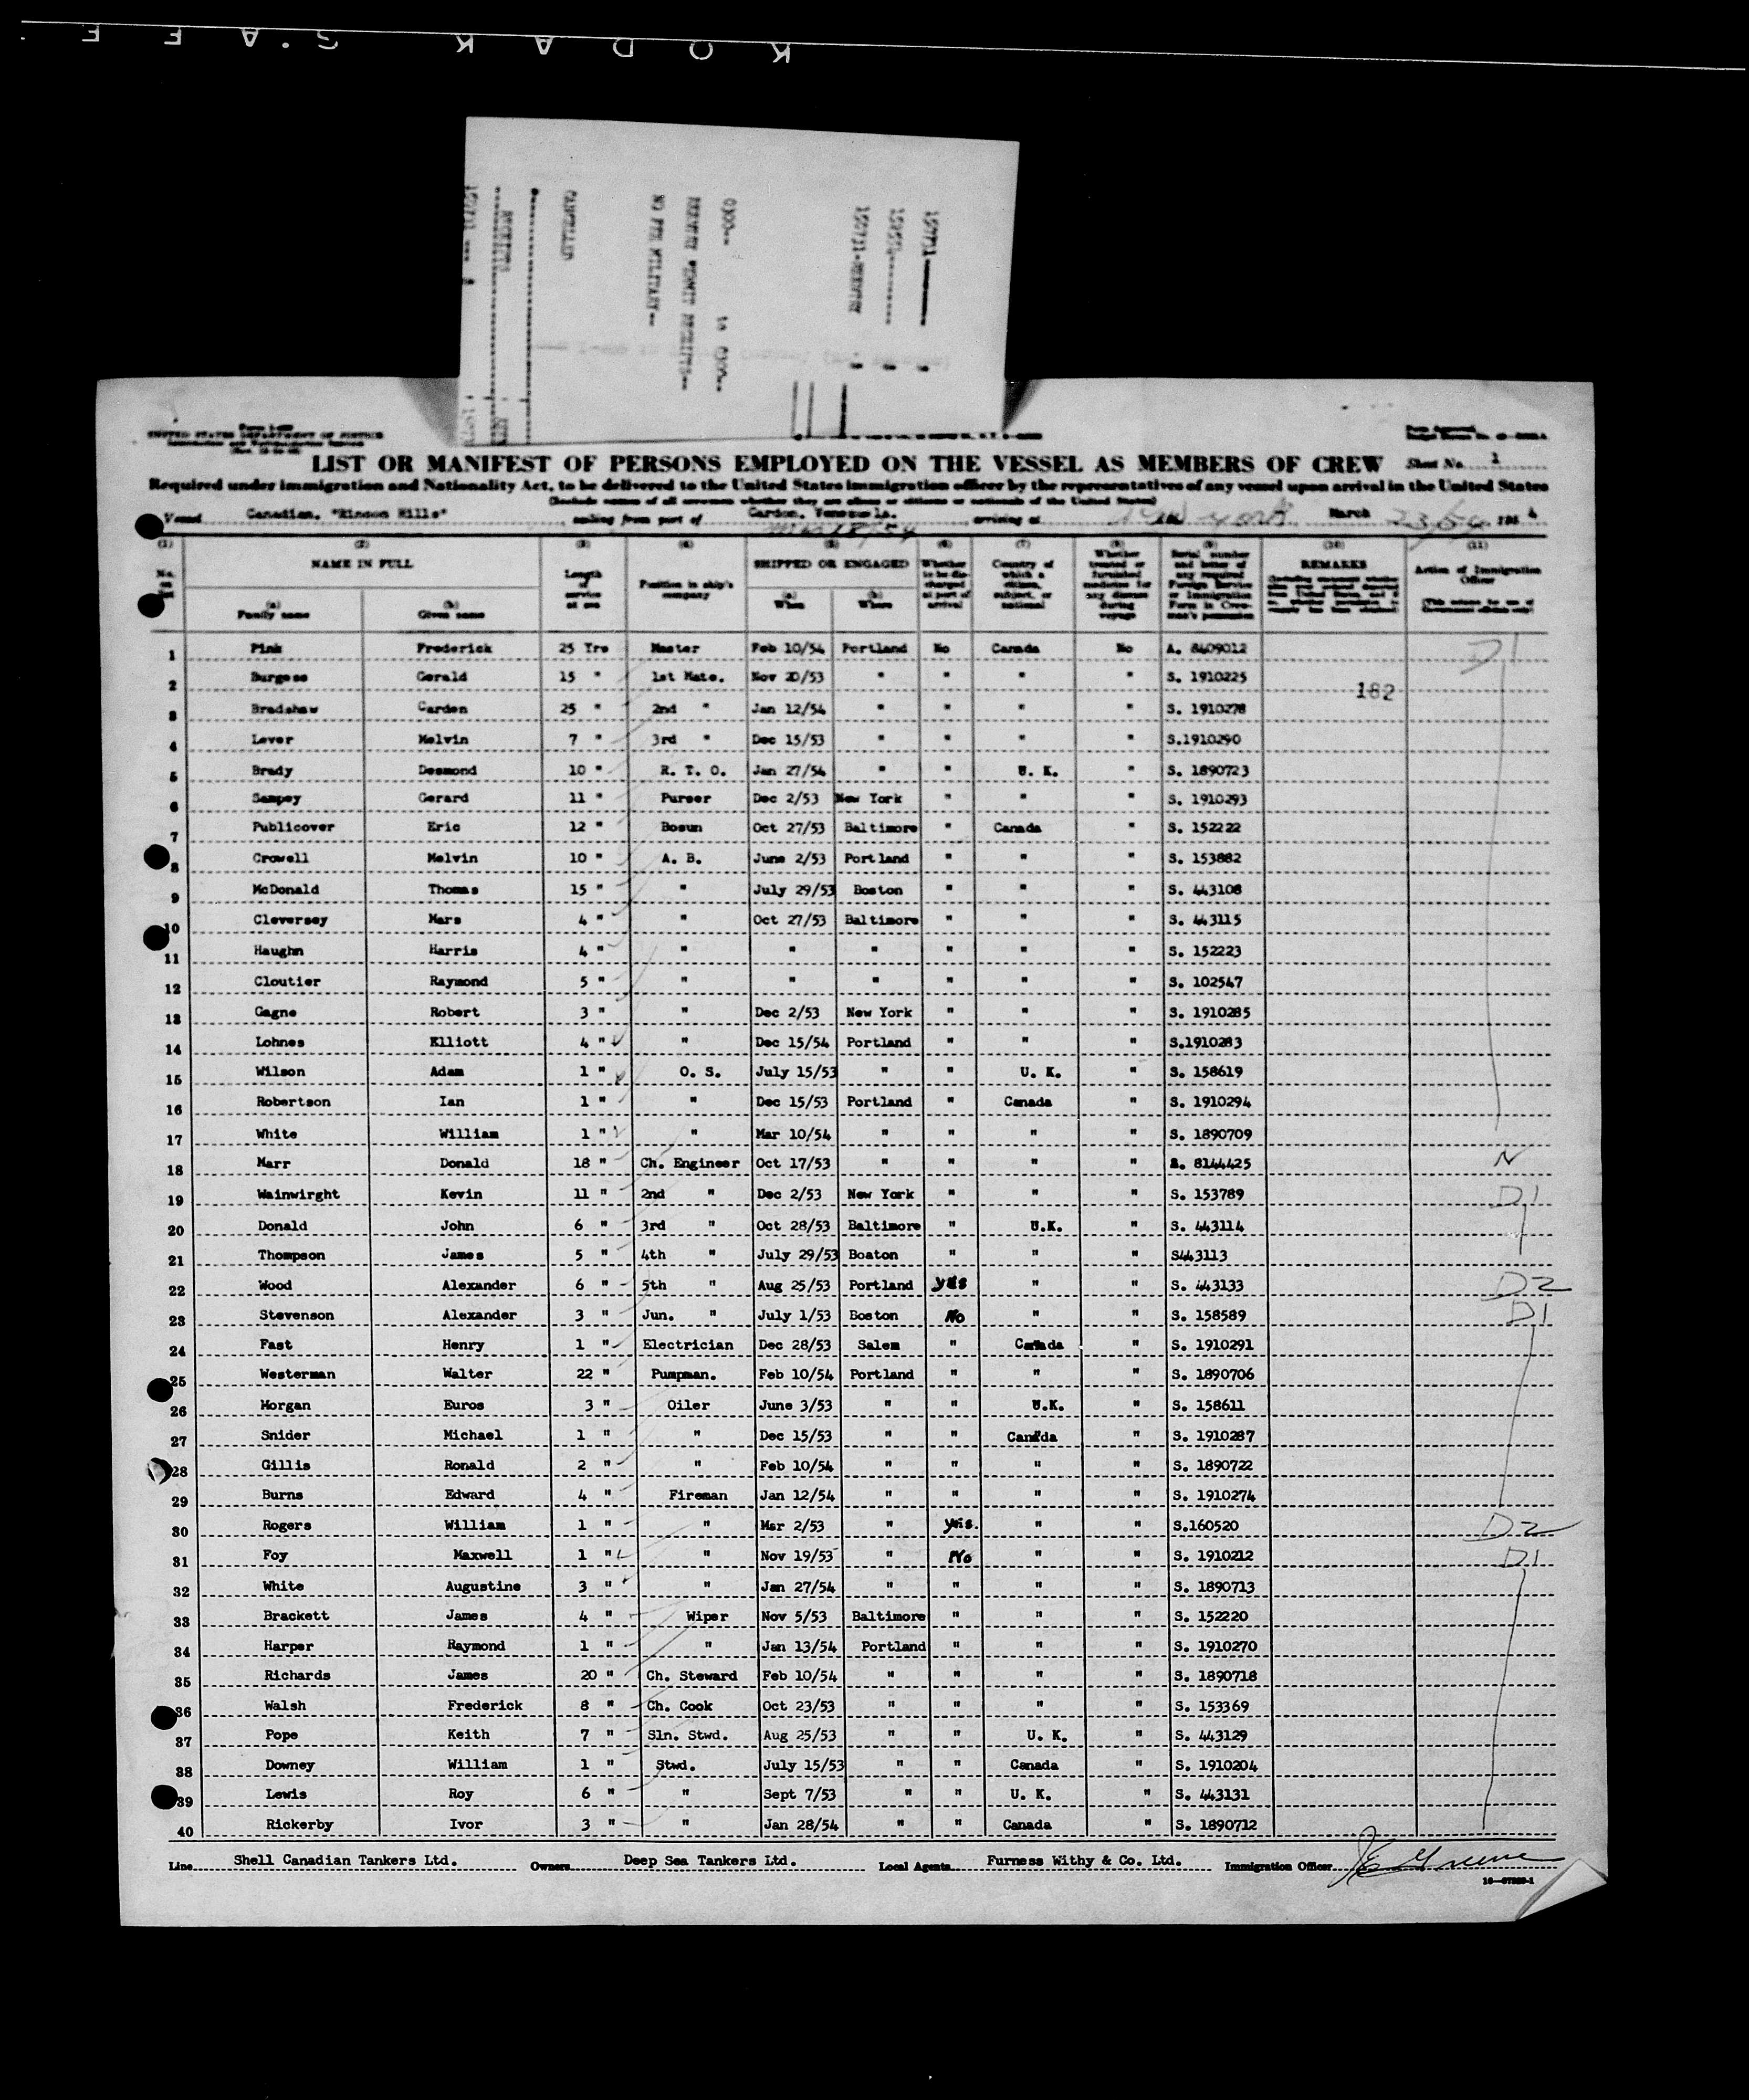 KODAK S.A.F.E.
157731
157731-REENTRY
0300-- to 0300--
REENTRY PERMIT RECEIPTS--
NO FEE MILITARY--
CANCELLED
UNITED STATES DEPARTMENT OF JUSTICE
LIST OR MANIFEST OF PERSONS EMPLOYED ON THE VESSEL AS MEMBERS OF CREW Sheet No. 1
Required under immigration and Nationality Act, to be delivered to the United States immigration officer by the representatives of any vessel upon arrival in the United States
(Include names of all crewmen whether they are aliens or citizens or nationals of the United States)
Vessel Canadian. "Rincon Hills" sailing from port of Cardon, Venezuela. arriving at New York March 23/54 195 4
(1) (2) (3) (4) (5) (6) (7) (8) (9) (10) (11)
No. on list NAME IN FULL Length of service at sea Position in ship's company SHIPPED OR ENGAGED Whether to be discharged at port of arrival Country of which a citizen, subject, or national Whether treated or furnished medicine for any disease during voyage Serial number and letter of any required Foreign Service or Immigration Form in Crewman's possession REMARKS Action of Immigration Officer
(a) Family name (b) Given name (a) When (b) Where (This column for use of Government officials only)
1 Pink Frederick 25 Yrs Master Feb 10/54 Portland No Canada No A. 8409012 D1
2 Burgess Gerald 15 " 1st Mate. Nov 20/53 " " " " S. 1910225 182
3 Bradshaw Carden 25 " 2nd " Jan 12/54 " " " " S. 1910278
4 Lever Melvin 7 " 3rd " Dec 15/53 " " " " S.1910290
5 Brady Desmond 10 " R. T. O. Jan 27/54 " " U. K. " S. 1890723
6 Sampey Gerard 11 " Purser Dec 2/53 New York " " " S. 1910293
7 Publicover Eric 12 " Bosun Oct 27/53 Baltimore " Canada " S. 152222
8 Crowell Melvin 10 " A. B. June 2/53 Portland " " " S. 153882
9 McDonald Thomas 15 " " July 29/53 Boston " " " S. 443108
10 Cleversey Mars 4 " " Oct 27/53 Baltimore " " " S. 443115
11 Haughn Harris 4 " " " " " " " S. 152223
12 Cloutier Raymond 5 " " " " " " " S. 102547
13 Gagne Robert 3 " " Dec 2/53 New York " " " S. 1910285
14 Lohnes Elliott 4 " " Dec 15/54 Portland " " " S.1910283
15 Wilson Adam 1 " O. S. July 15/53 " " U. K. " S. 158619
16 Robertson Ian 1 " " Dec 15/53 Portland " Canada " S. 1910294
17 White William 1 " " Mar 10/54 " " " " S. 1890709
18 Marr Donald 18 " Ch. Engineer Oct 17/53 " " " " A. 8144425 N
19 Wainwirght Kevin 11 " 2nd " Dec 2/53 New York " " " S. 153789 D1
20 Donald John 6 " 3rd " Oct 28/53 Baltimore " U.K. " S. 443114
21 Thompson James 5 " 4th " July 29/53 Boaton " " " S443113
22 Wood Alexander 6 " 5th " Aug 25/53 Portland yes " " S. 443133 D2
23 Stevenson Alexander 3 " Jun. " July 1/53 Boston No " " S. 158589 D1
24 Fast Henry 1 " Electrician Dec 28/53 Salem " Canada " S. 1910291
25 Westerman Walter 22 " Pumpman. Feb 10/54 Portland " " " S. 1890706
26 Morgan Euros 3 " Oiler June 3/53 " " U.K. " S. 158611
27 Snider Michael 1 " " Dec 15/53 " " Canada " S. 1910287
28 Gillis Ronald 2 " " Feb 10/54 " " " " S. 1890722
29 Burns Edward 4 " Fireman Jan 12/54 " " " " S. 1910274
30 Rogers William 1 " " Mar 2/53 " yes. " " S.160520 D2
31 Foy Maxwell 1 " " Nov 19/53 " No " " S. 1910212 D1
32 White Augustine 3 " " Jan 27/54 " " " " S. 1890713
33 Brackett James 4 " Wiper Nov 5/53 Baltimore " " " S. 152220
34 Harper Raymond 1 " " Jan 13/54 Portland " " " S. 1910270
35 Richards James 20 " Ch. Steward Feb 10/54 " " " " S. 1890718
36 Walsh Frederick 8 " Ch. Cook Oct 23/53 " " " " S. 153369
37 Pope Keith 7 " Sln. Stwd. Aug 25/53 " " U. K. " S. 443129
38 Downey William 1 " Stwd. July 15/53 " " Canada " S. 1910204
39 Lewis Roy 6 " " Sept 7/53 " " U. K. " S. 443131
40 Rickerby Ivor 3 " " Jan 28/54 " " Canada " S. 1890712
Line Shell Canadian Tankers Ltd. Owners Deep Sea Tankers Ltd. Local Agents Furness Withy & Co. Ltd. Immigration Officer